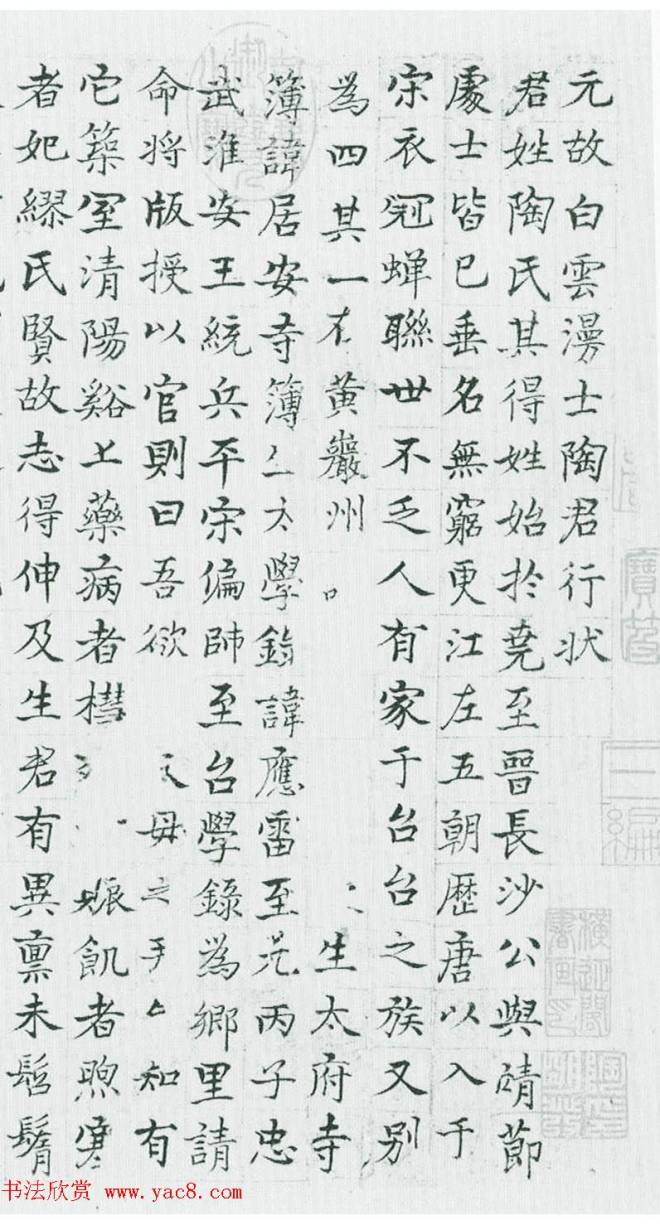 元故白雲漫士陶君行状
君姓陶氏其得姓始於堯至晉長沙公與靖節
處士皆已垂名無窮更江左五朝歷唐以入于
宋衣冠蟬聯世不乏人有家于台台之族又别
為四其一在黄巖州 生太府寺
簿諱居安寺簿生太學錄諱應雷至元丙子忠
武淮安王統兵平宋偏師至台學錄為鄉里請
命將版授以官則曰吾欲 父母之 知有
它築室清陽谿上藥病者槥 賑飢者煦寒
者妃繆氏賢故志得伸及生君有異禀未髫鬌
二編
书法欣赏 www.yac8.com